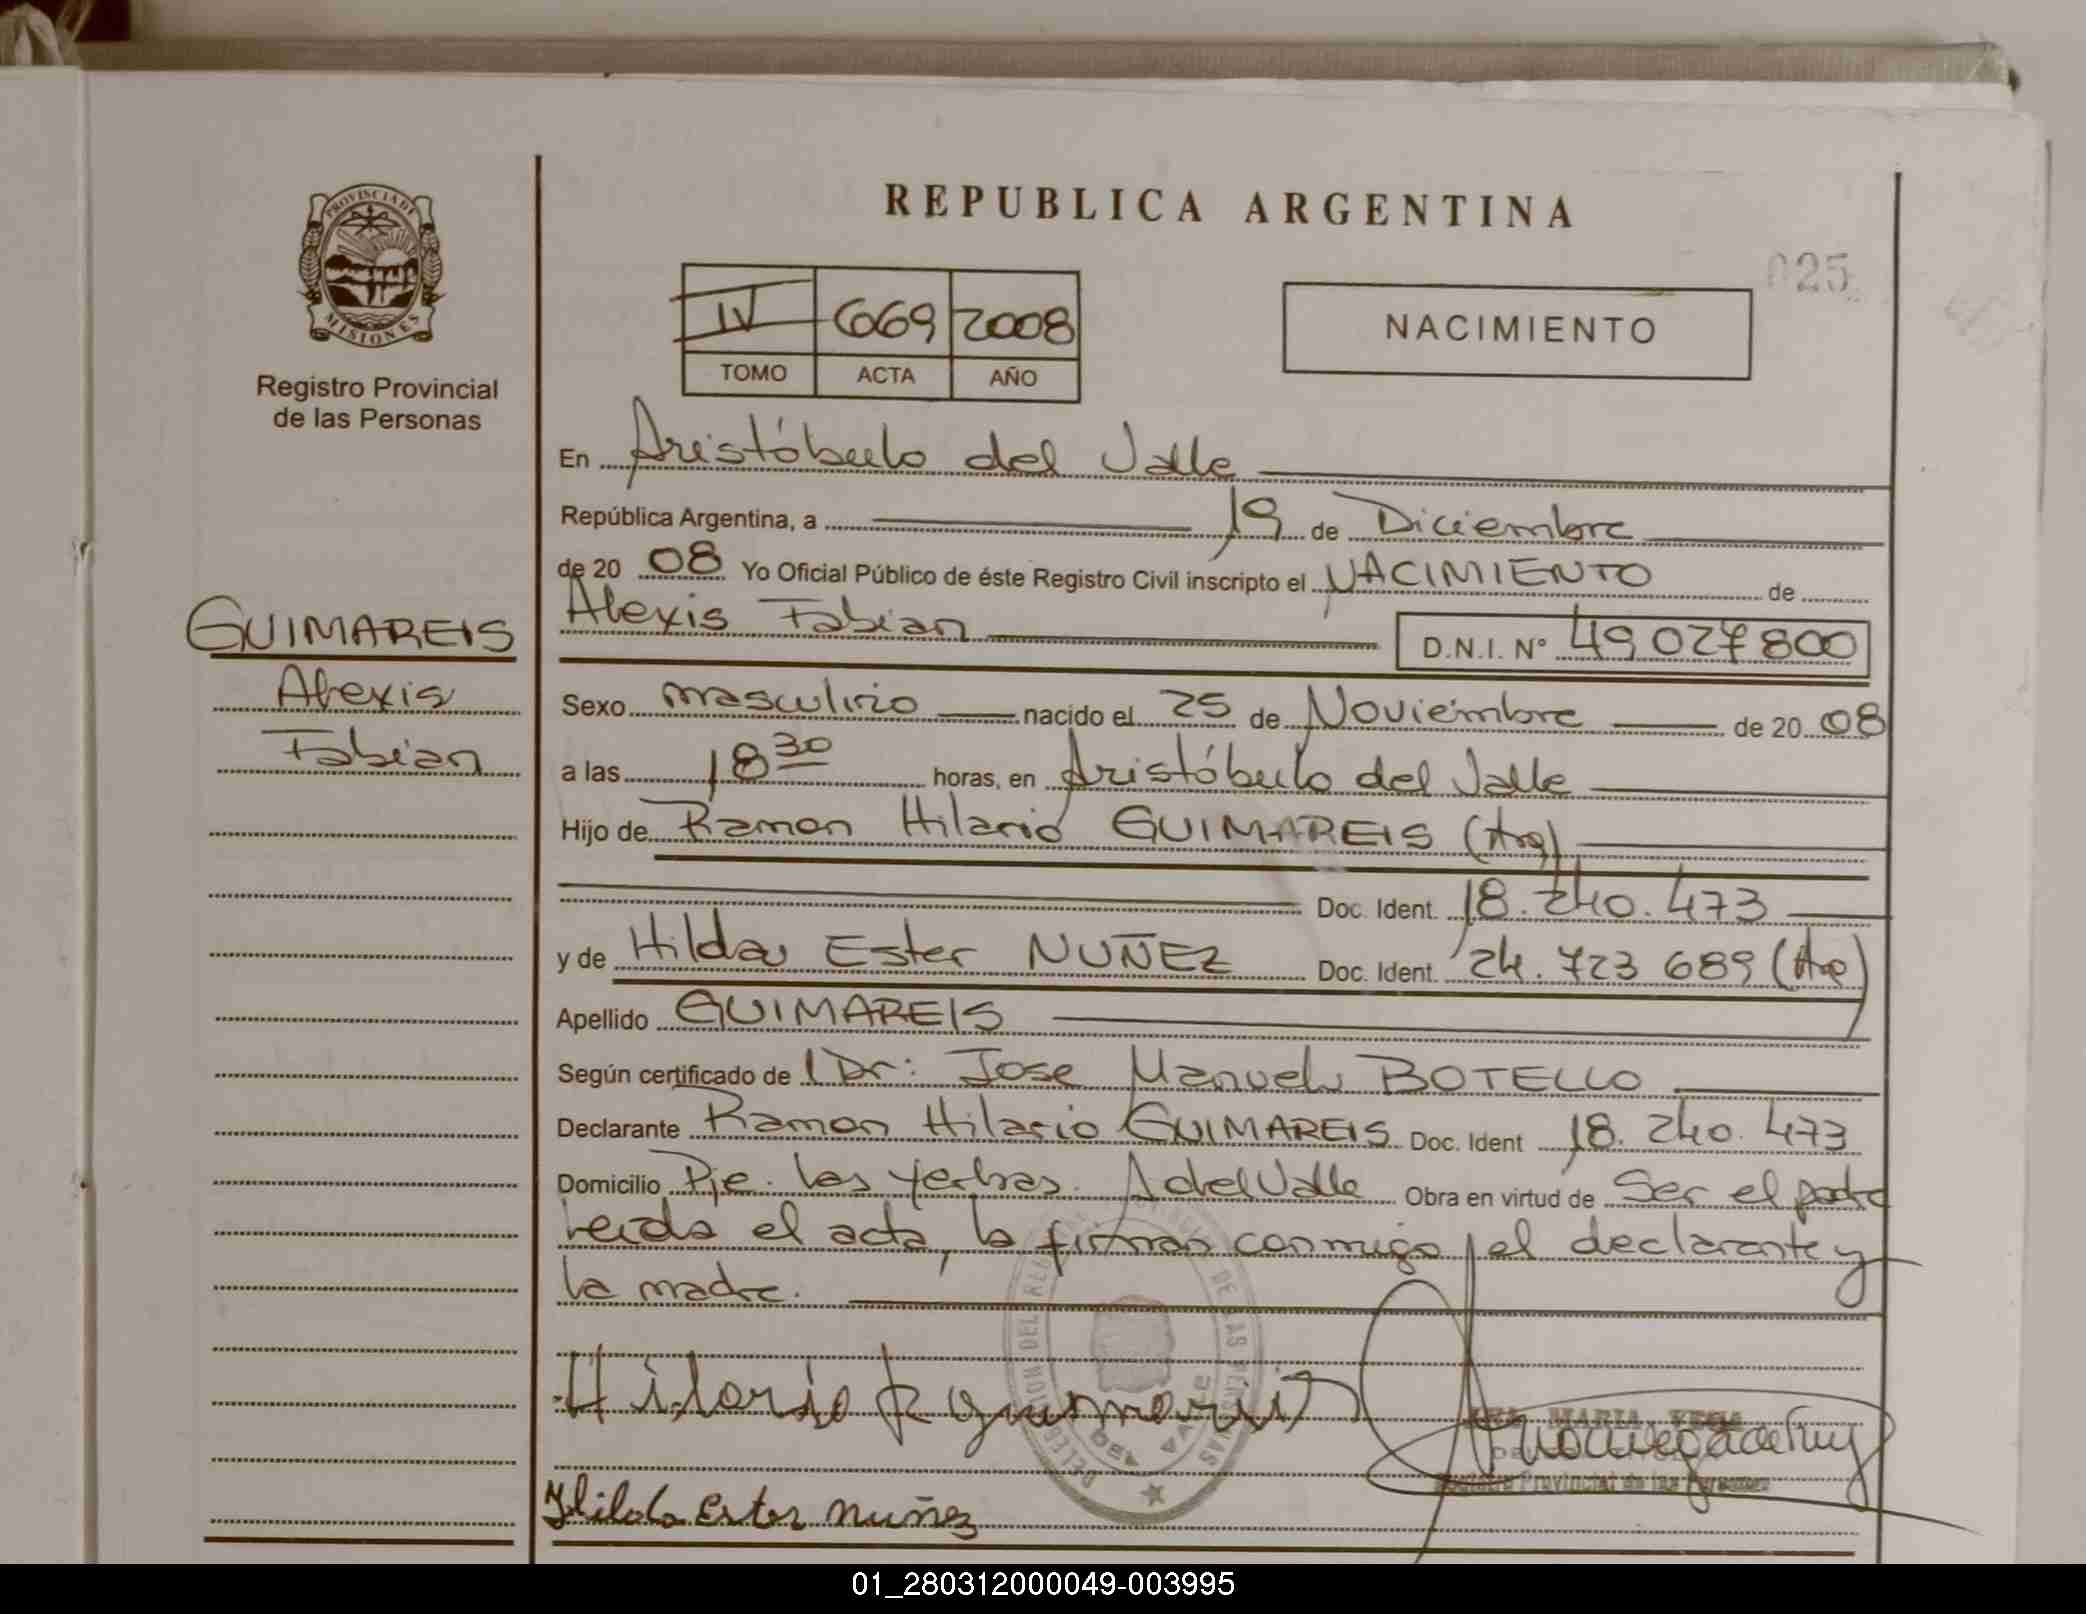 REPUBLICA ARGENTINA
PROVINCIA DE MISIONES
025
IV 669 2008
TOMO ACTA AÑO
NACIMIENTO
Registro Provincial
de las Personas
En Aristóbulo del Valle
República Argentina, a 19 de Diciembre
de 20 08 Yo Oficial Público de éste Registro Civil inscripto el NACIMIENTO de
Alexis Fabian D.N.I. Nº 49 027 800
GUIMAREIS
Alexis
Fabian
Sexo masculino nacido el 25 de Noviembre de 20 08
a las 18 30 horas, en Aristóbulo del Valle
Hijo de Ramon Hilario GUIMAREIS (Arg)
Doc. Ident. 18.240.473
y de Hilda Ester NUÑEZ Doc. Ident. 24.723 689 (Arg)
Apellido GUIMAREIS
Según certificado de Dr: Jose Manuel BOTELLO
Declarante Ramon Hilario GUIMAREIS Doc. Ident 18. 240. 473
Domicilio Pje. las yerbas. A del Valle Obra en virtud de Ser el padre
leida el acta, la firman conmigo el declarante y
la madre.
Hilario R guimareis
MARIA VEGA
Registro Provincial de las Personas
Hilda Ester nuñez
01_280312000049-003995